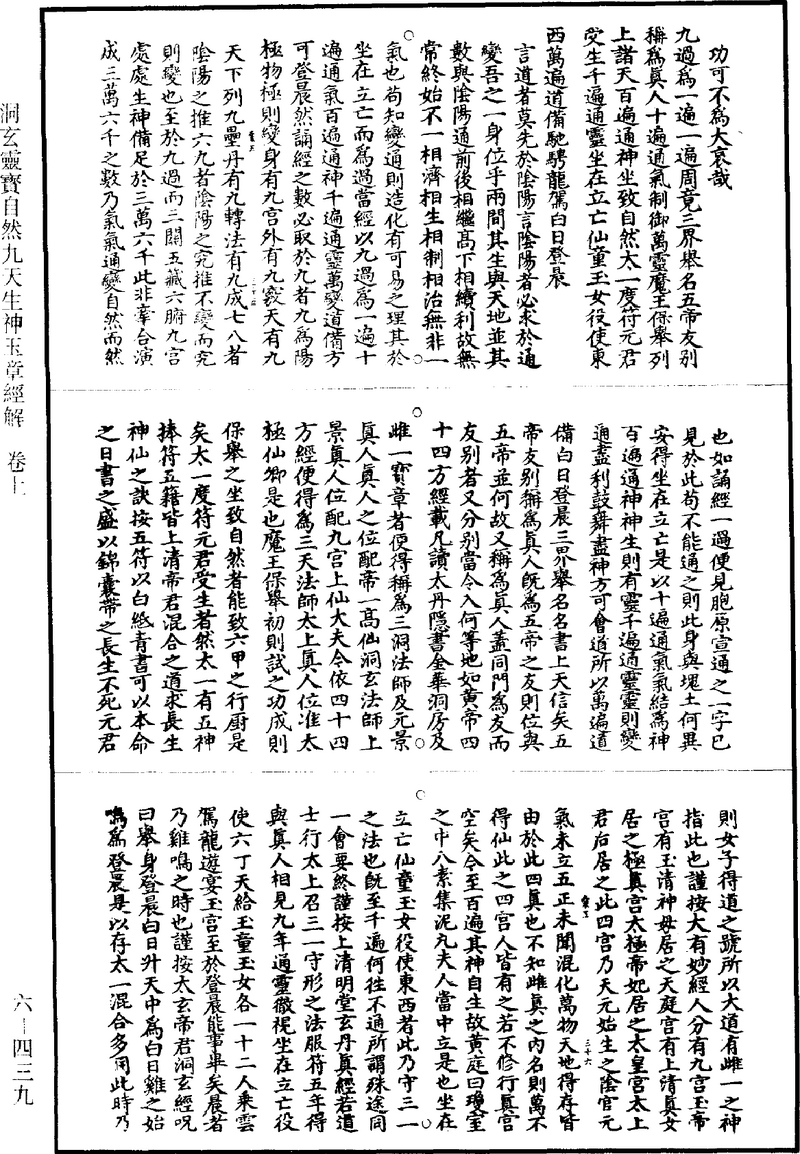 功可不為大哀哉
九過為一遍一遍周竟三界舉名五帝友別
稱為眞人十遍通氣制御萬靈魔王保舉列
上諸天百遍通神坐致自然太一度符元君
受生千遍通靈坐在立亡仙童玉女役使東
西萬遍道備馳騁龍駕白日登晨
言道者莫先於陰陽言陰陽者必求於通
變吾之一身位乎兩間其生與天地並其
數與陰陽通前後相繼高下相續利故無
常終始不一相濟相生相制相治無非一
氣也苟知變通則造化有可易之理其於
坐在立亡而為過當經以九過為一遍十
遍通氣百遍通神千遍通靈萬變道備方
可登晨然誦經之數必取於九者九為陽
極物極則變身有九宮外有九竅天有九
天下列九壘丹有九轉法有九成七八者
陰陽之推六九者陰陽之究推不變而究
則變也至於九過而三關五藏六腑九宮
處處生神備足於三萬六千此非牽合演
成三萬六千之數乃氣氣通變自然而然
也如誦經一過便見胞原宣通之一字已
見於此苟不能通之則此身與塊土何異
安得坐在立亡是以十遍通氣氣結為神
百遍通神神生則有靈千遍通靈靈則變
通盡利鼓舞盡神方可會道所以萬遍道
備白日登晨三界舉名名書上天信矣五
帝友別稱為眞人旣為五帝之友則位與
五帝並何故又稱為眞人蓋同門為友而
友別者又分別當令入何等地如黃帝四
十四方經載凡讀太丹隱書金華洞房及
雌一寶章者便得稱為三洞法師及元景
眞人眞人之位配帝一高仙洞玄法師上
景眞人位配九宮上仙大夫令依四十四
方經便得為三天法師太上眞人位准太
極仙卿是也魔王保舉初則試之功成則
保舉之坐致自然者能致六甲之行厨是
矣太一度符元君受生者然太一有五神
捧符五籍皆上清帝君混合之道求長生
神仙之訣按五符以白絕青書可以本命
之日書之盛以錦囊帶之長生不死元君
則女子得道之號所以大道有雌一之神
指此也謹按大有妙經人分有九宮玉帝
宮有玉清神母居之天庭宮有上清眞女
居之極眞宮太極帝妃居之太皇宮太上
君后居之此四宮乃天元始生之陰官元
氣未立五正未聞混化萬物天地得存皆
由於此四眞也不知雌眞之內名則萬不
得仙此之四宮人皆有之若不修行眞宮
空矣今至百遍其神自生故黃庭曰瓊室
之中八素集泥丸夫人當中立是也坐在
立亡仙童玉女役使東西者此乃守三一
之法也旣至千遍何往不通所謂殊途同
一會要終謹按上清明堂玄丹眞經若道
士行太上召三一守形之法服符五年得
與眞人相見九年通靈徹視坐在立亡役
使六丁天給玉童玉女各一十二人乘雲
駕龍遊宴玉宮至於登晨能事畢矣晨者
乃雞鳴之時也謹按太玄帝君洞玄經呪
曰舉身登晨白日升天中為白日雞之始
鳴為登晨是以存太一混合多用此時乃
洞玄靈寶自然九天生神玉章經解 卷十
六—四三九